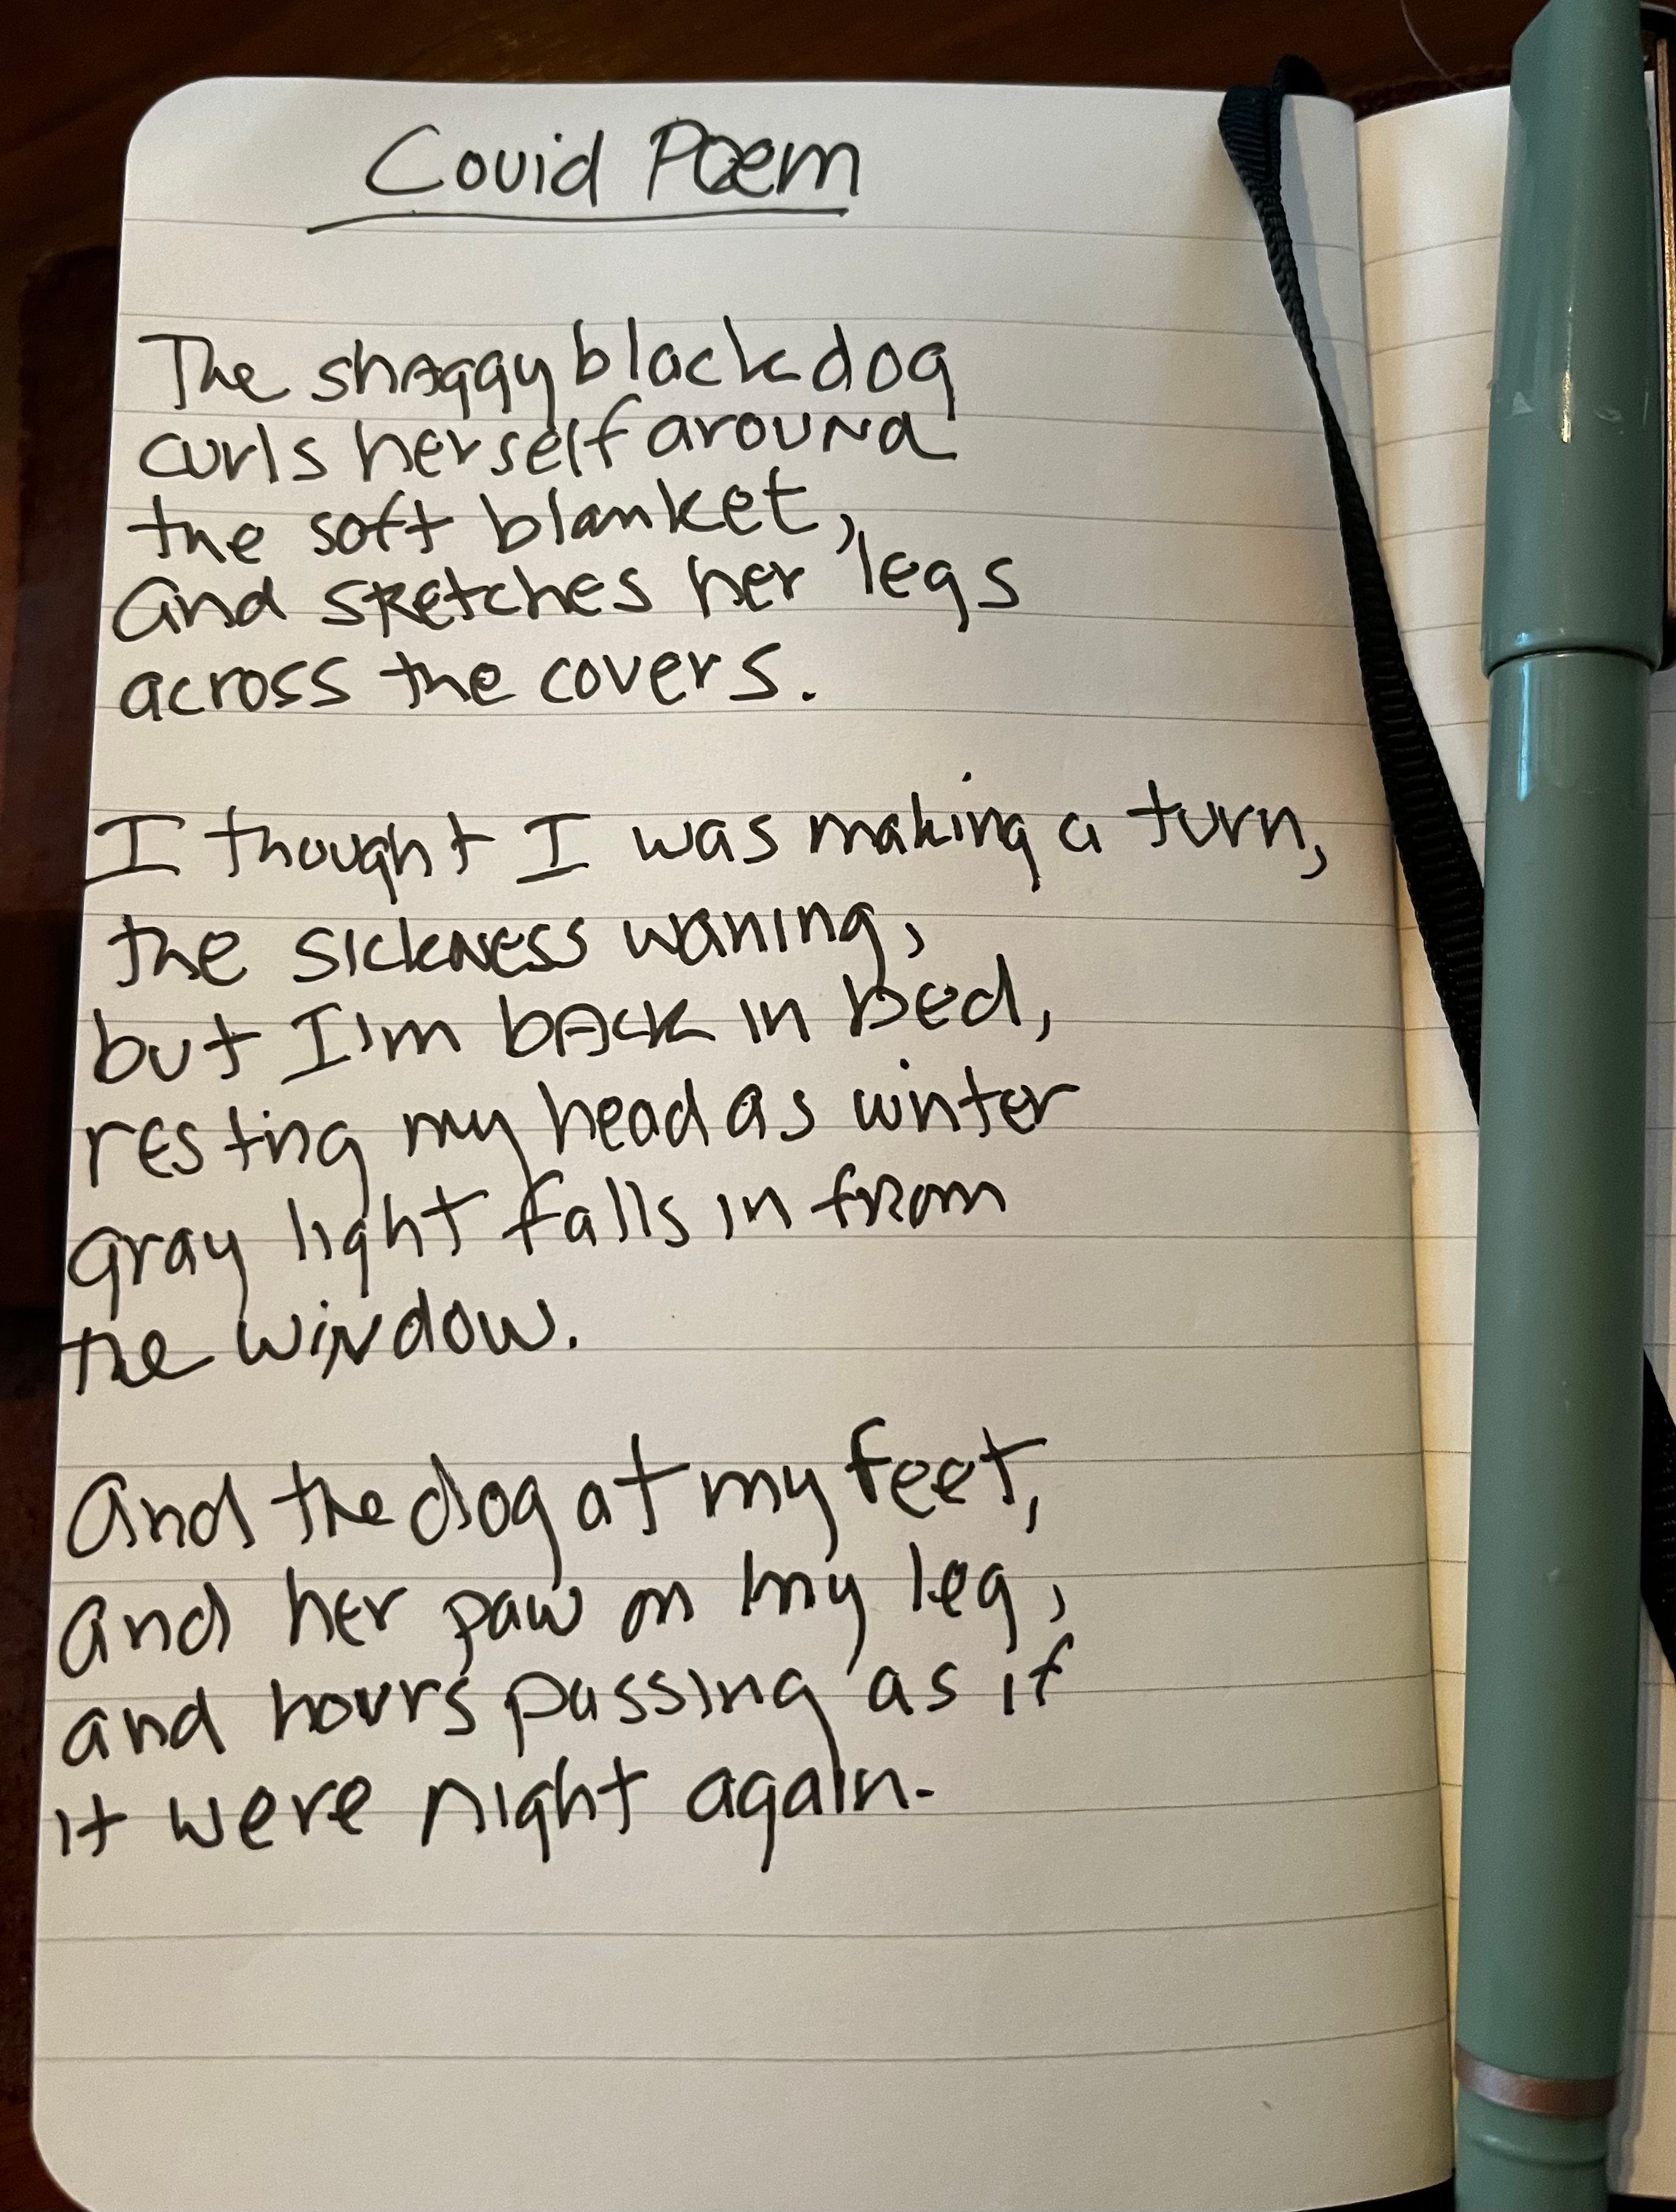 Covid Poem
The shaggy black dog
curls herself around
the soft blanket,
and sketches her legs
across the covers.
I thought I was making a turn,
the sickness waning,
but I'm back in bed,
resting my head as winter
gray light falls in from
the window.
And the dog at my feet,
and her paw on my leg,
and hours passing as if
it were night again.